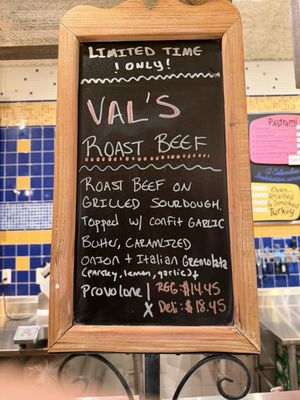 LIMITED TIME
! ONLY!
VAL'S
ROAST BEEF
ROAST BEEF ON
GRILLED SOURDOUGH.
TOPPED W/ CONFIT GARLIC
CARAMLIZED
ONION + ITALIAN GREMOLATA
(parsley, lemon, garlic) +
Provolone | REG: $14.45
X Deli: $18.45
Pastrami
OVEN
Roasted
& Smoked
TURKEY